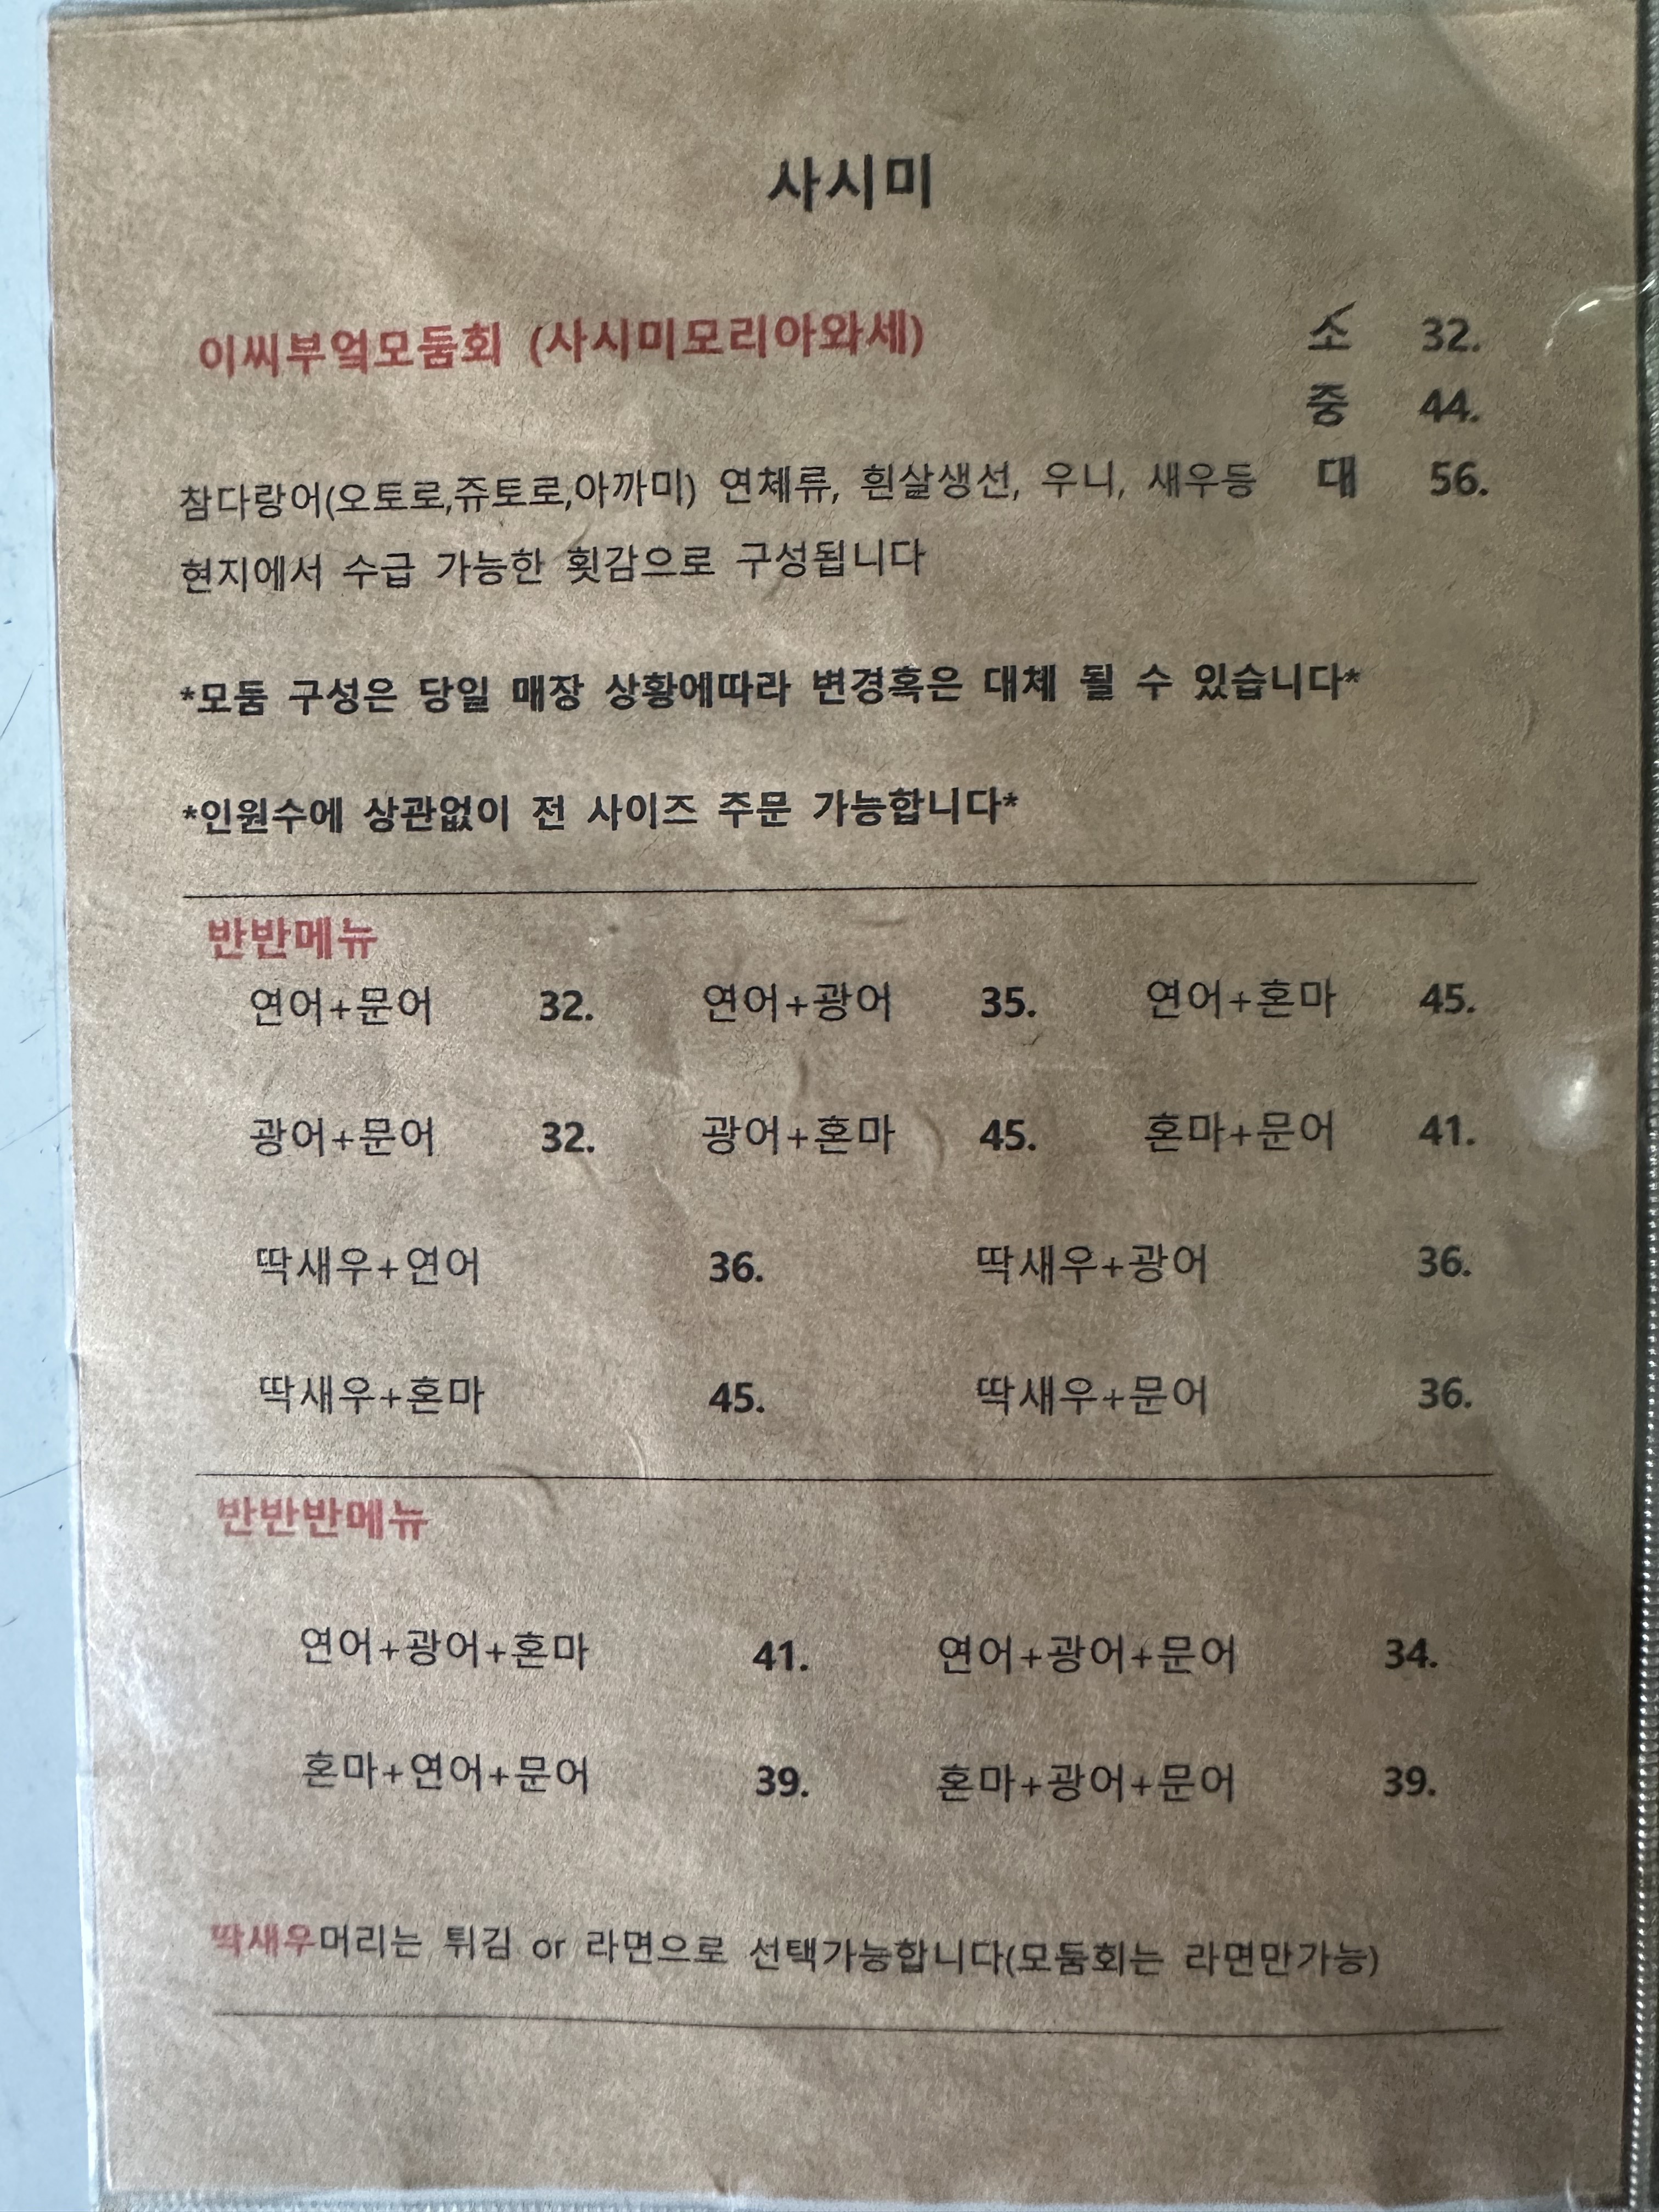 사시미
이씨부엌모둠회 (사시미모리아와세) 소 32.
중 44.
참다랑어(오토로,쥬토로,아까미) 연체류, 흰살생선, 우니, 새우등 대 56.
현지에서 수급 가능한 횟감으로 구성됩니다
*모둠 구성은 당일 매장 상황에따라 변경혹은 대체 될 수 있습니다*
*인원수에 상관없이 전 사이즈 주문 가능합니다*
반반메뉴
연어+문어 32. 연어+광어 35. 연어+혼마 45.
광어+문어 32. 광어+혼마 45. 혼마+문어 41.
딱새우+연어 36. 딱새우+광어 36.
딱새우+혼마 45. 딱새우+문어 36.
반반반메뉴
연어+광어+혼마 41. 연어+광어+문어 34.
혼마+연어+문어 39. 혼마+광어+문어 39.
딱새우머리는 튀김 or 라면으로 선택가능합니다(모둠회는 라면만가능)